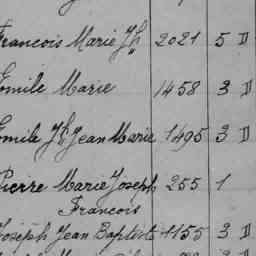 Francois Marie Jh 2021 5 D
Emile Marie 1458 3 D
Emile Jh Jean Marie 1495 3 D
Pierre Marie Joseph 255 1
Francois
Joseph Jean Baptiste 1155 3 D